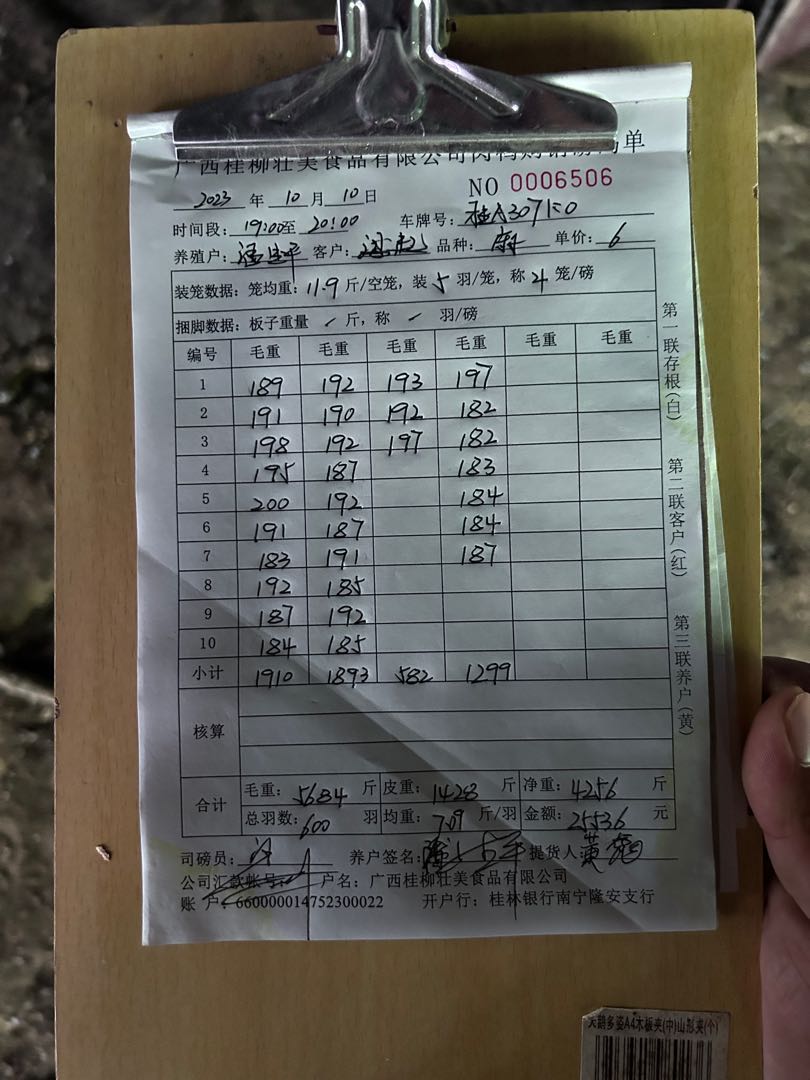 广西桂柳壮美食品有限公司肉鸭购销磅码单
2023 年 10 月 10 日 NO 0006506
时间段: 19:00 至 20:00 车牌号:
养殖户: 客户: 品种: 麻 单价: 6
装笼数据: 笼均重: 11.9 斤/空笼, 装 5 羽/笼, 称 4 笼/磅
捆脚数据: 板子重量 ✓ 斤, 称 ✓ 羽/磅
编号 毛重 毛重 毛重 毛重 毛重 毛重
1 189 192 193 197
2 191 190 192 182
3 198 192 197 182
4 195 187 183
5 200 192 184
6 191 187 184
7 183 191 187
8 192 185
9 187 192
10 184 185
小计 1910 1893 582 1299
核算
合计 毛重: 5684 斤 皮重: 1428 斤 净重: 4256 斤
总羽数: 600 羽 均重: 7.09 斤/羽 金额: 25536 元
司磅员: 许 养户签名: 提货人: 黄
公司汇款帐号: 户名: 广西桂柳壮美食品有限公司
账 户: 660000014752300022 开户行: 桂林银行南宁隆安支行
第一联存根(白)
第二联客户(红)
第三联养户(黄)
天鹅多姿A4木板夹(中)山形夹(个)